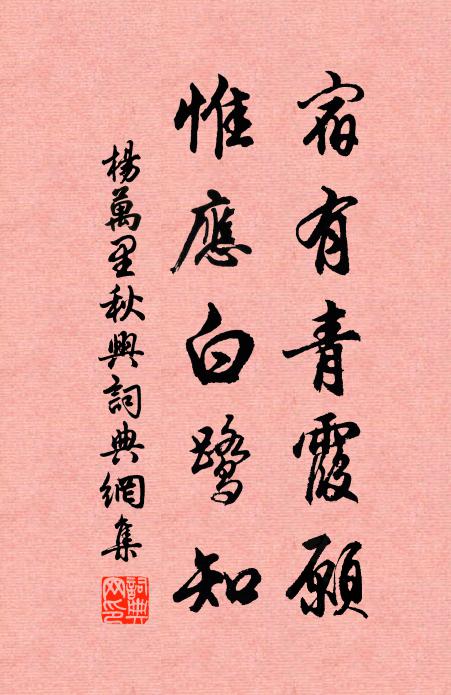 宿有青霞願
惟應白鷺知
楊萬里秋興詞典網集
詞典
網印